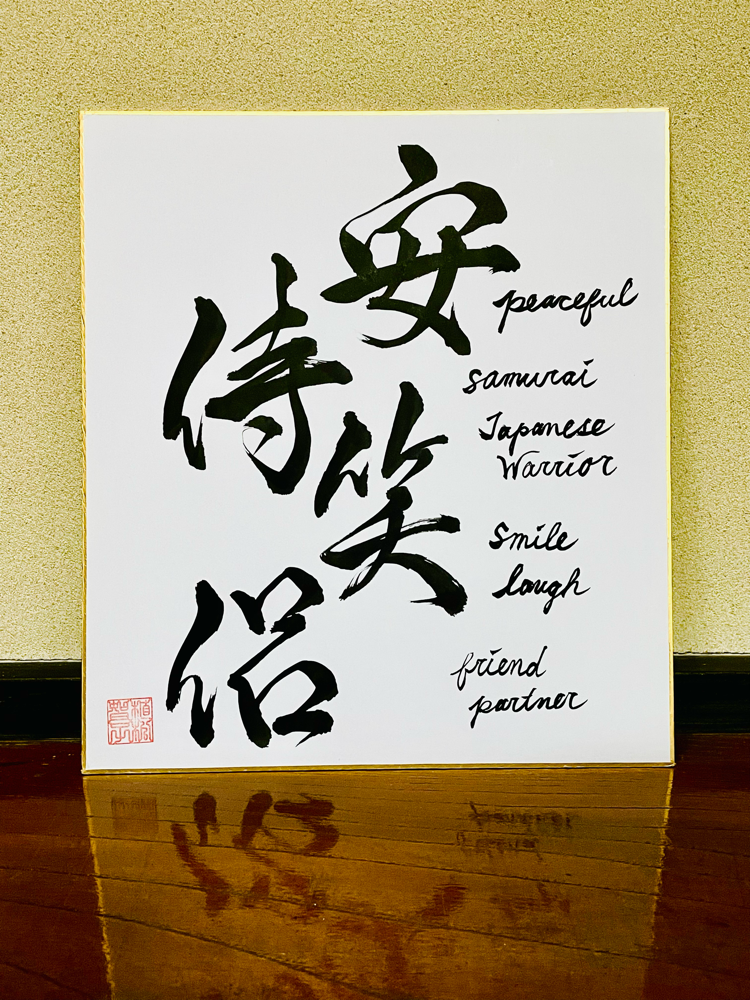 安
侍
笑
侶
peaceful
samurai
Japanese
Warrior
Smile
laugh
friend
partner